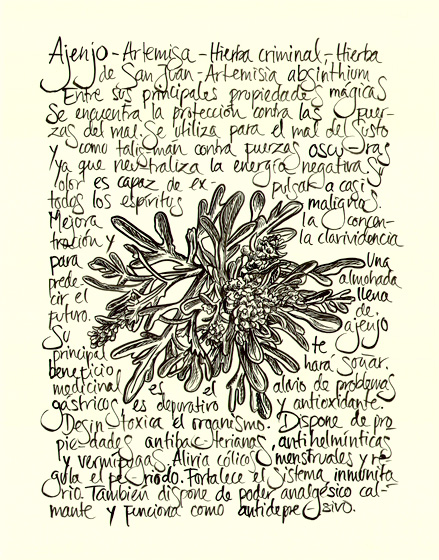 Ajenjo - Artemisa - Hierba criminal - Hierba
de San Juan - Artemisia absinthium
Entre sus principales propiedades mágicas
se encuentra la protección contra las fuer-
zas del mal. Se utiliza para el mal del susto
y como talismán contra fuerzas oscuras
ya que neutraliza la energía negativa. Su
olor es capaz de expulsar a casi
todos los espíritus malignos.
Mejora la concen-
tración y la clarividencia
para Una
prede- almohada
cir el llena
futuro. de
Su ajenjo
principal te
beneficio hará soñar.
medicinal es el alivio de problemas
gástricos es depurativo y antioxidante.
Desintoxica el organismo. Dispone de pro
piedades antibacterianas, antihelmínticas
y vermífugas. Alivia cólicos menstruales y re
gula el periodo. Fortalece el sistema inmunita
rio. También dispone de poder analgésico cal-
mante y funciona como antidepresivo.